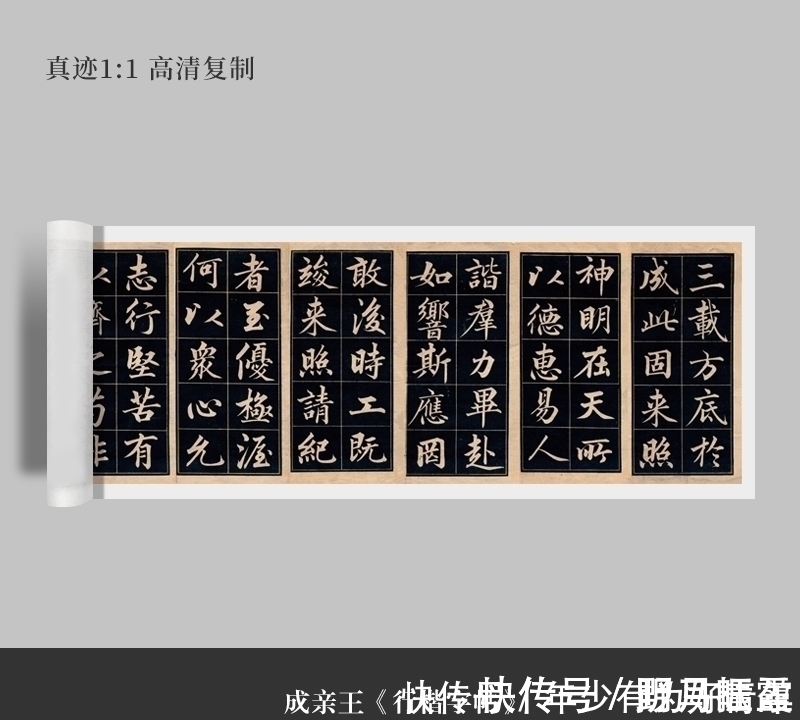 真迹1:1 高清复制
三載方底於
成此固来照
神明在天所
以德惠易人
諧羣力畢赴
如響斯應罔
敢後時工既
竣来照請紀
者至優極渥
何以衆心允
志行堅苦有
成亲王《
快传号 /